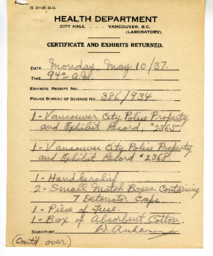 HEALTH DEPARTMENT
CITY HALL VANCOUVER, B.C.
(LABORATORY)
CERTIFICATE AND EXHIBITS RETURNED.
DATE Monday May 10/37.
TIME A.M.
EXHIBITS RECEIPT NO.
POLICE BUREAU OF SCIENCE NO. 386/934
1 - Vancouver City Police Property
and Exhibit Record, #2365
1 - Vancouver City Police Property
and Exhibit Record #2368
1 - Handkerchief
2 - Small Match Boxes Containing
7 Detonator Caps.
1 - Piece of Fuse.
1 - Box of Absorbent Cotton.
SIGNATURE
(Cont'd over)